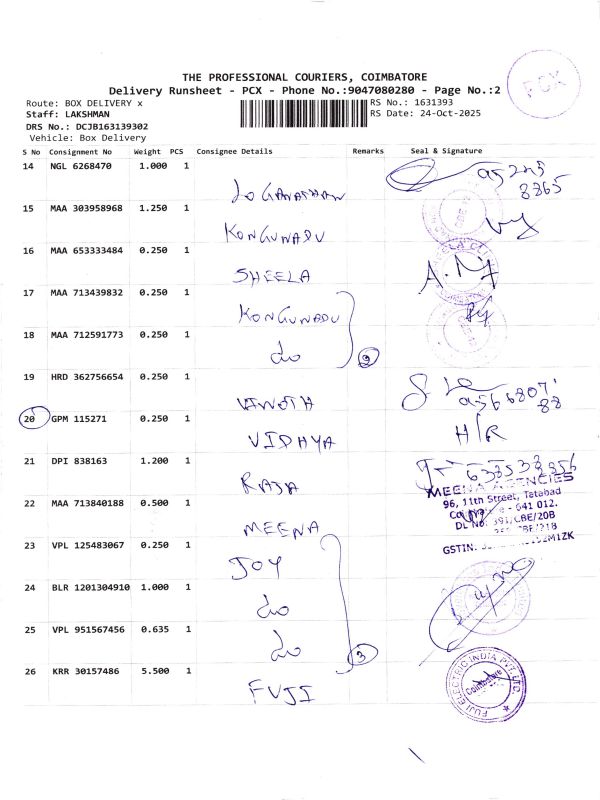 PCX
THE PROFESSIONAL COURIERS, COIMBATORE
Delivery Runsheet - PCX - Phone No.:9047080280 - Page No.:2
Route: BOX DELIVERY x
RS No.: 1631393
Staff: LAKSHMAN
RS Date: 24-Oct-2025
DRS No.: DCJB163139302
Vehicle: Box Delivery
S No Consignment No Weight PCS Consignee Details Remarks Seal & Signature
14 NGL 6268470 1.000 1
LOGANATHAN
15 MAA 303958968 1.250 1
KONGUNADU
16 MAA 653333484 0.250 1
SHEELA
17 MAA 713439832 0.250 1
KONGUNADU
18 MAA 712591773 0.250 1
do
19 HRD 362756654 0.250 1
VINOTH
20 GPM 115271 0.250 1
VIDHYA
H/R
21 DPI 838163 1.200 1
RAJA
MEENA AGENCIES
96, 11th Street, Tatabad
641 012.
22 MAA 713840188 0.500 1
MEENA
GSTIN.
23 VPL 125483067 0.250 1
JOY
24 BLR 1201304910 1.000 1
do
25 VPL 951567456 0.635 1
do
3
26 KRR 30157486 5.500 1
FUJI
FUJI ELECTRIC INDIA PVT. LTD.
Coimbatore